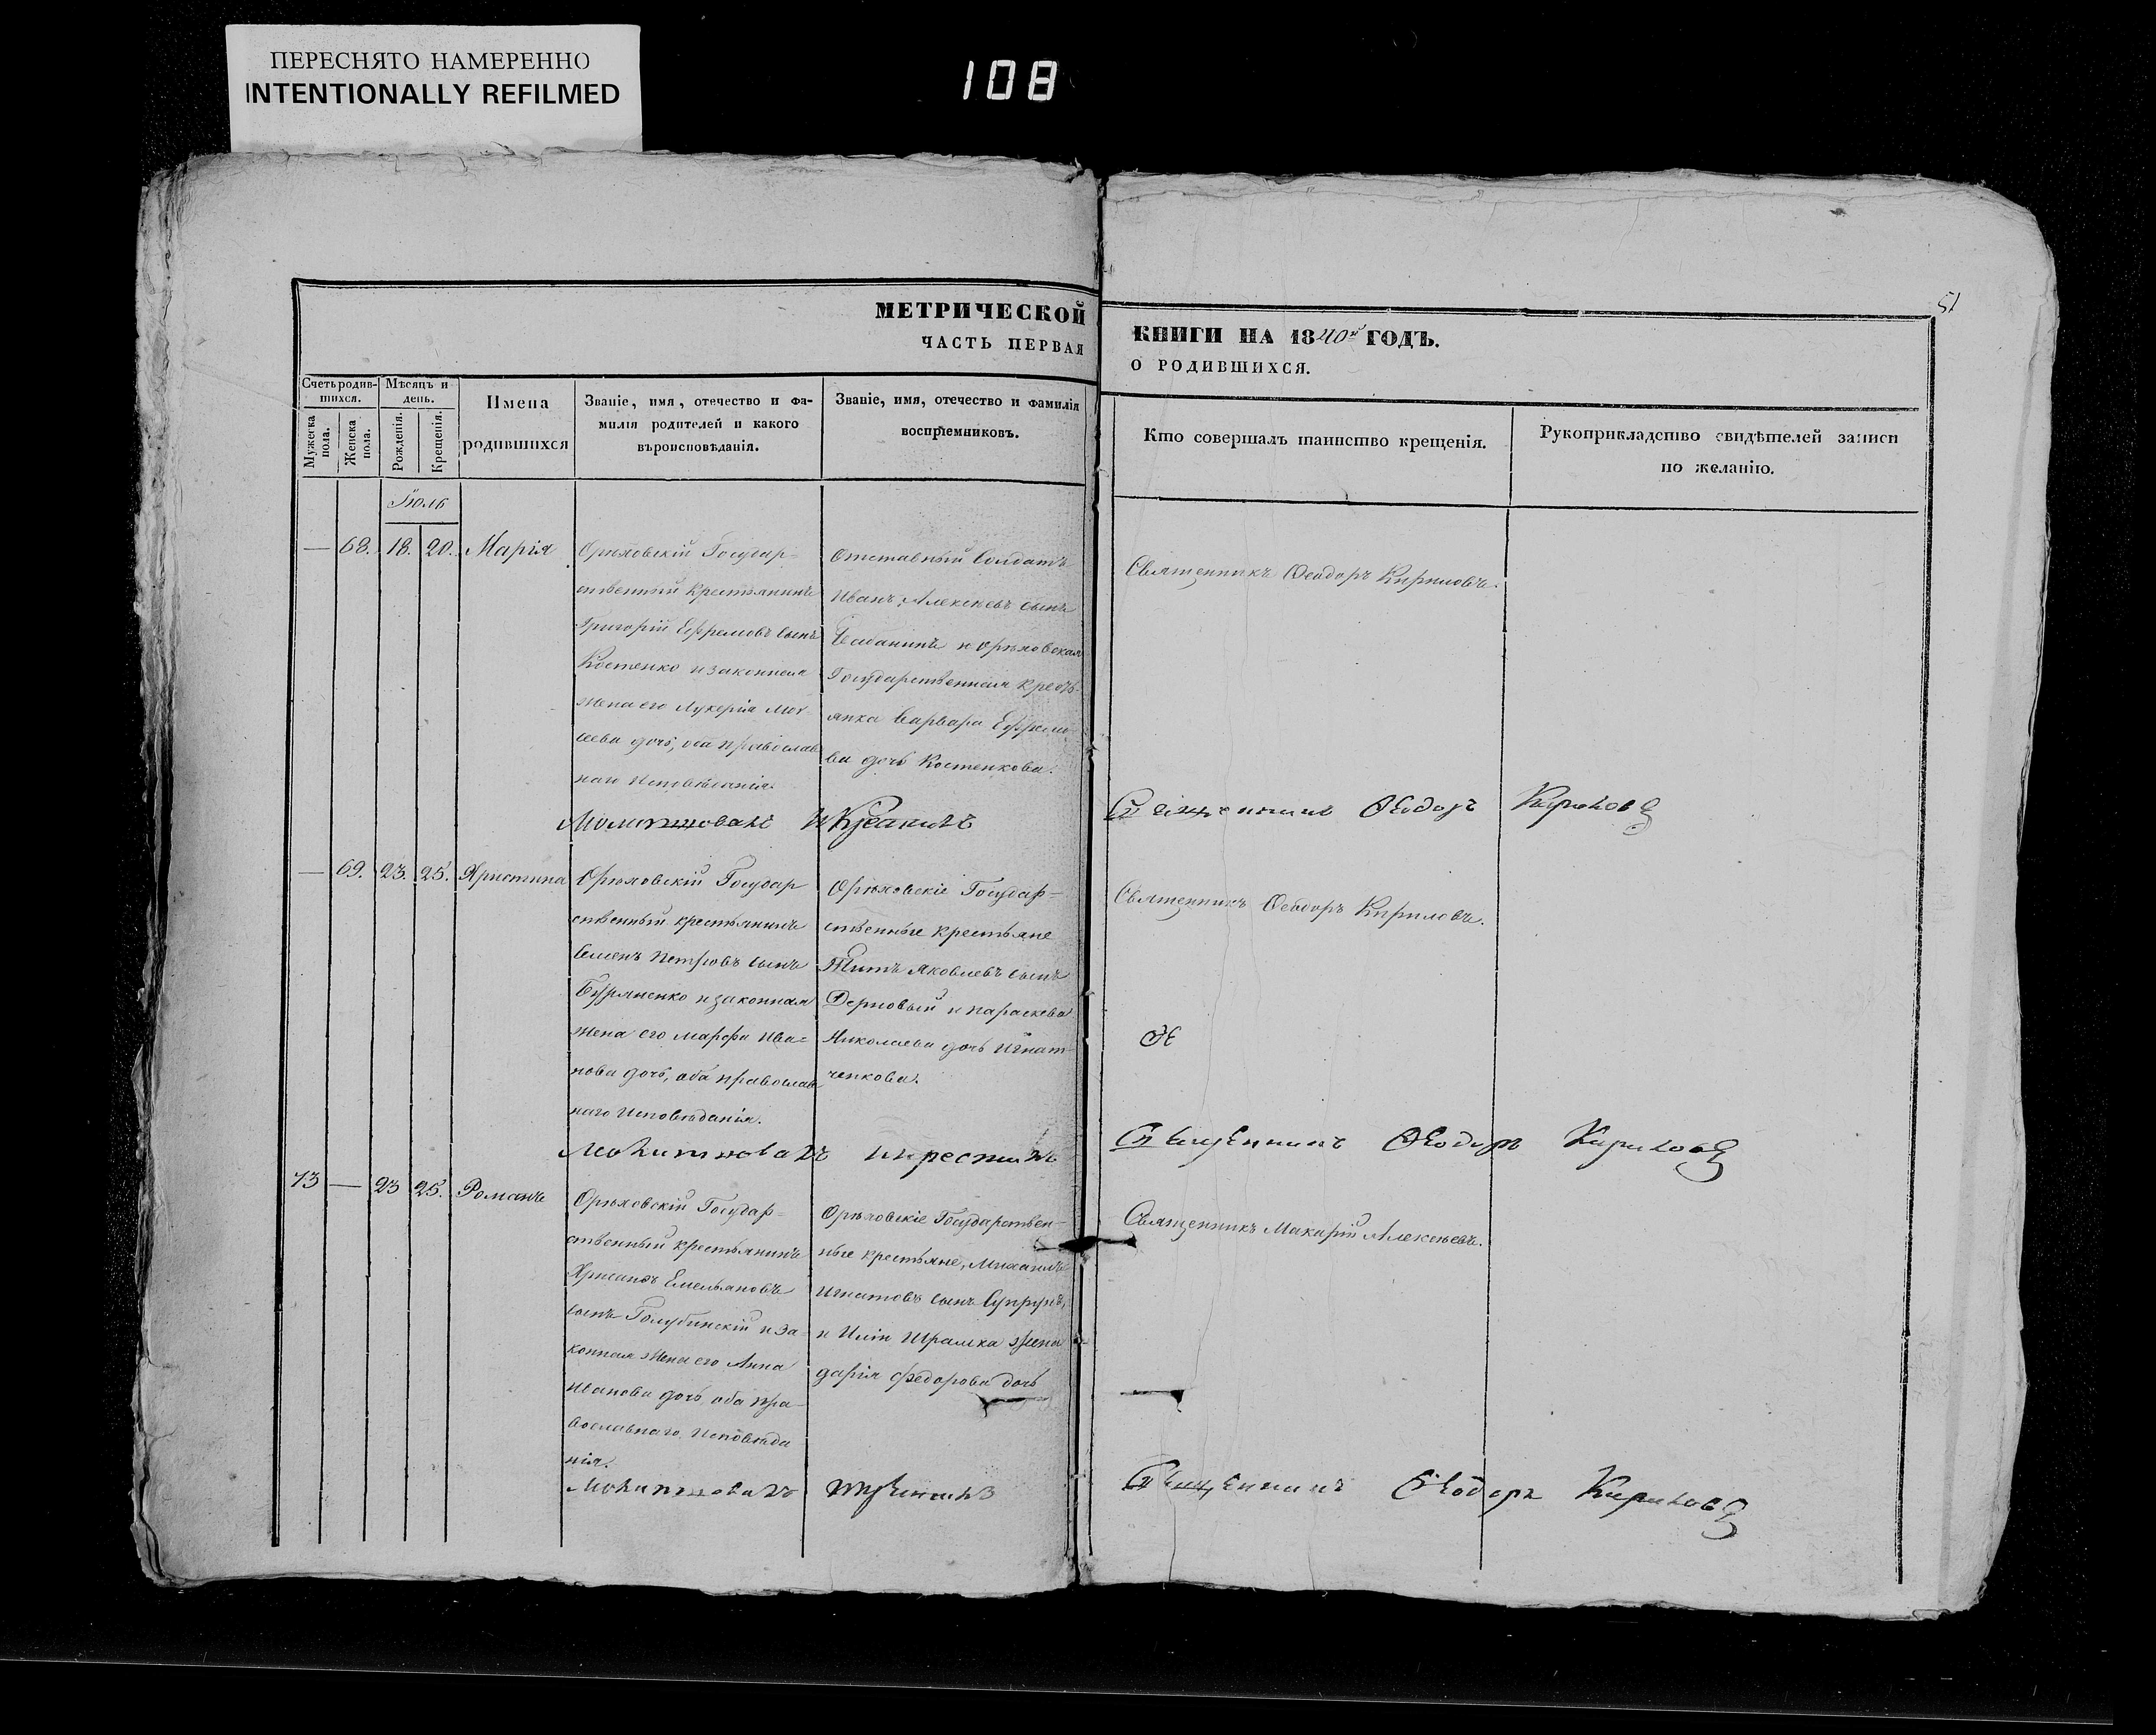 ПЕРЕСНЯТО НАМЕРЕННО
INTENTIONALLY REFILMED
108
51
МЕТРИЧЕСКОЙ
ЧАСТЬ ПЕРВАЯ
КНИГИ НА 1840й ГОДЪ.
О РОДИВШИХСЯ.
Счетъ родившихся.
Мужеска пола.
Женска пола.
Мѣсяцъ и день.
Рожденія.
Крещенія.
Имена
родившихся
Званіе, имя, отечество и фа-
милія родителей и какого
вѣроисповѣданія.
Званіе, имя, отечество и фамилія
воспріемниковъ.
Кто совершалъ таинство крещенія.
Рукоприкладство свидѣтелей записи
по желанію.
Іюль
— 68. 18. 20. Марія
Орѣховскій Государ=
ственный крестьянинъ
Григорій Ефремовъ сынъ
Костенко и законная
жена его Лукерія Мої
сеева дочь, оба православ
наго Исповѣданія.
Отставный Солдатъ
Иванъ Алексѣевъ сынъ
и Орѣховская
Государственная кресть-
янка Варвара Ефремо
ва дочь Костенкова.
Священникъ Ѳеодоръ Кириловъ.
Молитвовалъ И Крестилъ
Священникъ Ѳеодоръ Кириловъ
— 69. 23. 25. Христина
Орѣховскій Государ
ственный крестьянинъ
Семенъ Петровъ сынъ
Бурляненко и законная
жена его Марфа Ива=
нова дочь, оба православ
наго Исповѣданія.
Орѣховскіе Государ=
ственные крестьяне
Титъ Яковлевъ сынъ
Дерновый и Параскева
Николаева дочь Игнат-
ченкова.
Священникъ Ѳеодоръ Кириловъ.
Молитвовалъ и крестилъ
Священникъ Ѳеодоръ Кириловъ
73 — 23 25. Романъ
Орѣховскій Государ=
ственный крестьянинъ
Хрисанѳъ Емельяновъ
сынъ Голубинскій и за-
конная жена его Анна
Иванова дочь, оба пра-
вославнаго Исповѣда
нія.
Орѣховскіе Государствен-
ные крестьяне, Михаилъ
Игнатовъ сынъ Супрунъ,
и Иліи Шрамка жена
Дарія Федорова дочь
Священникъ Макарій Алексѣевъ.
Молитвовалъ и крестилъ
Священникъ Ѳеодоръ Кириловъ